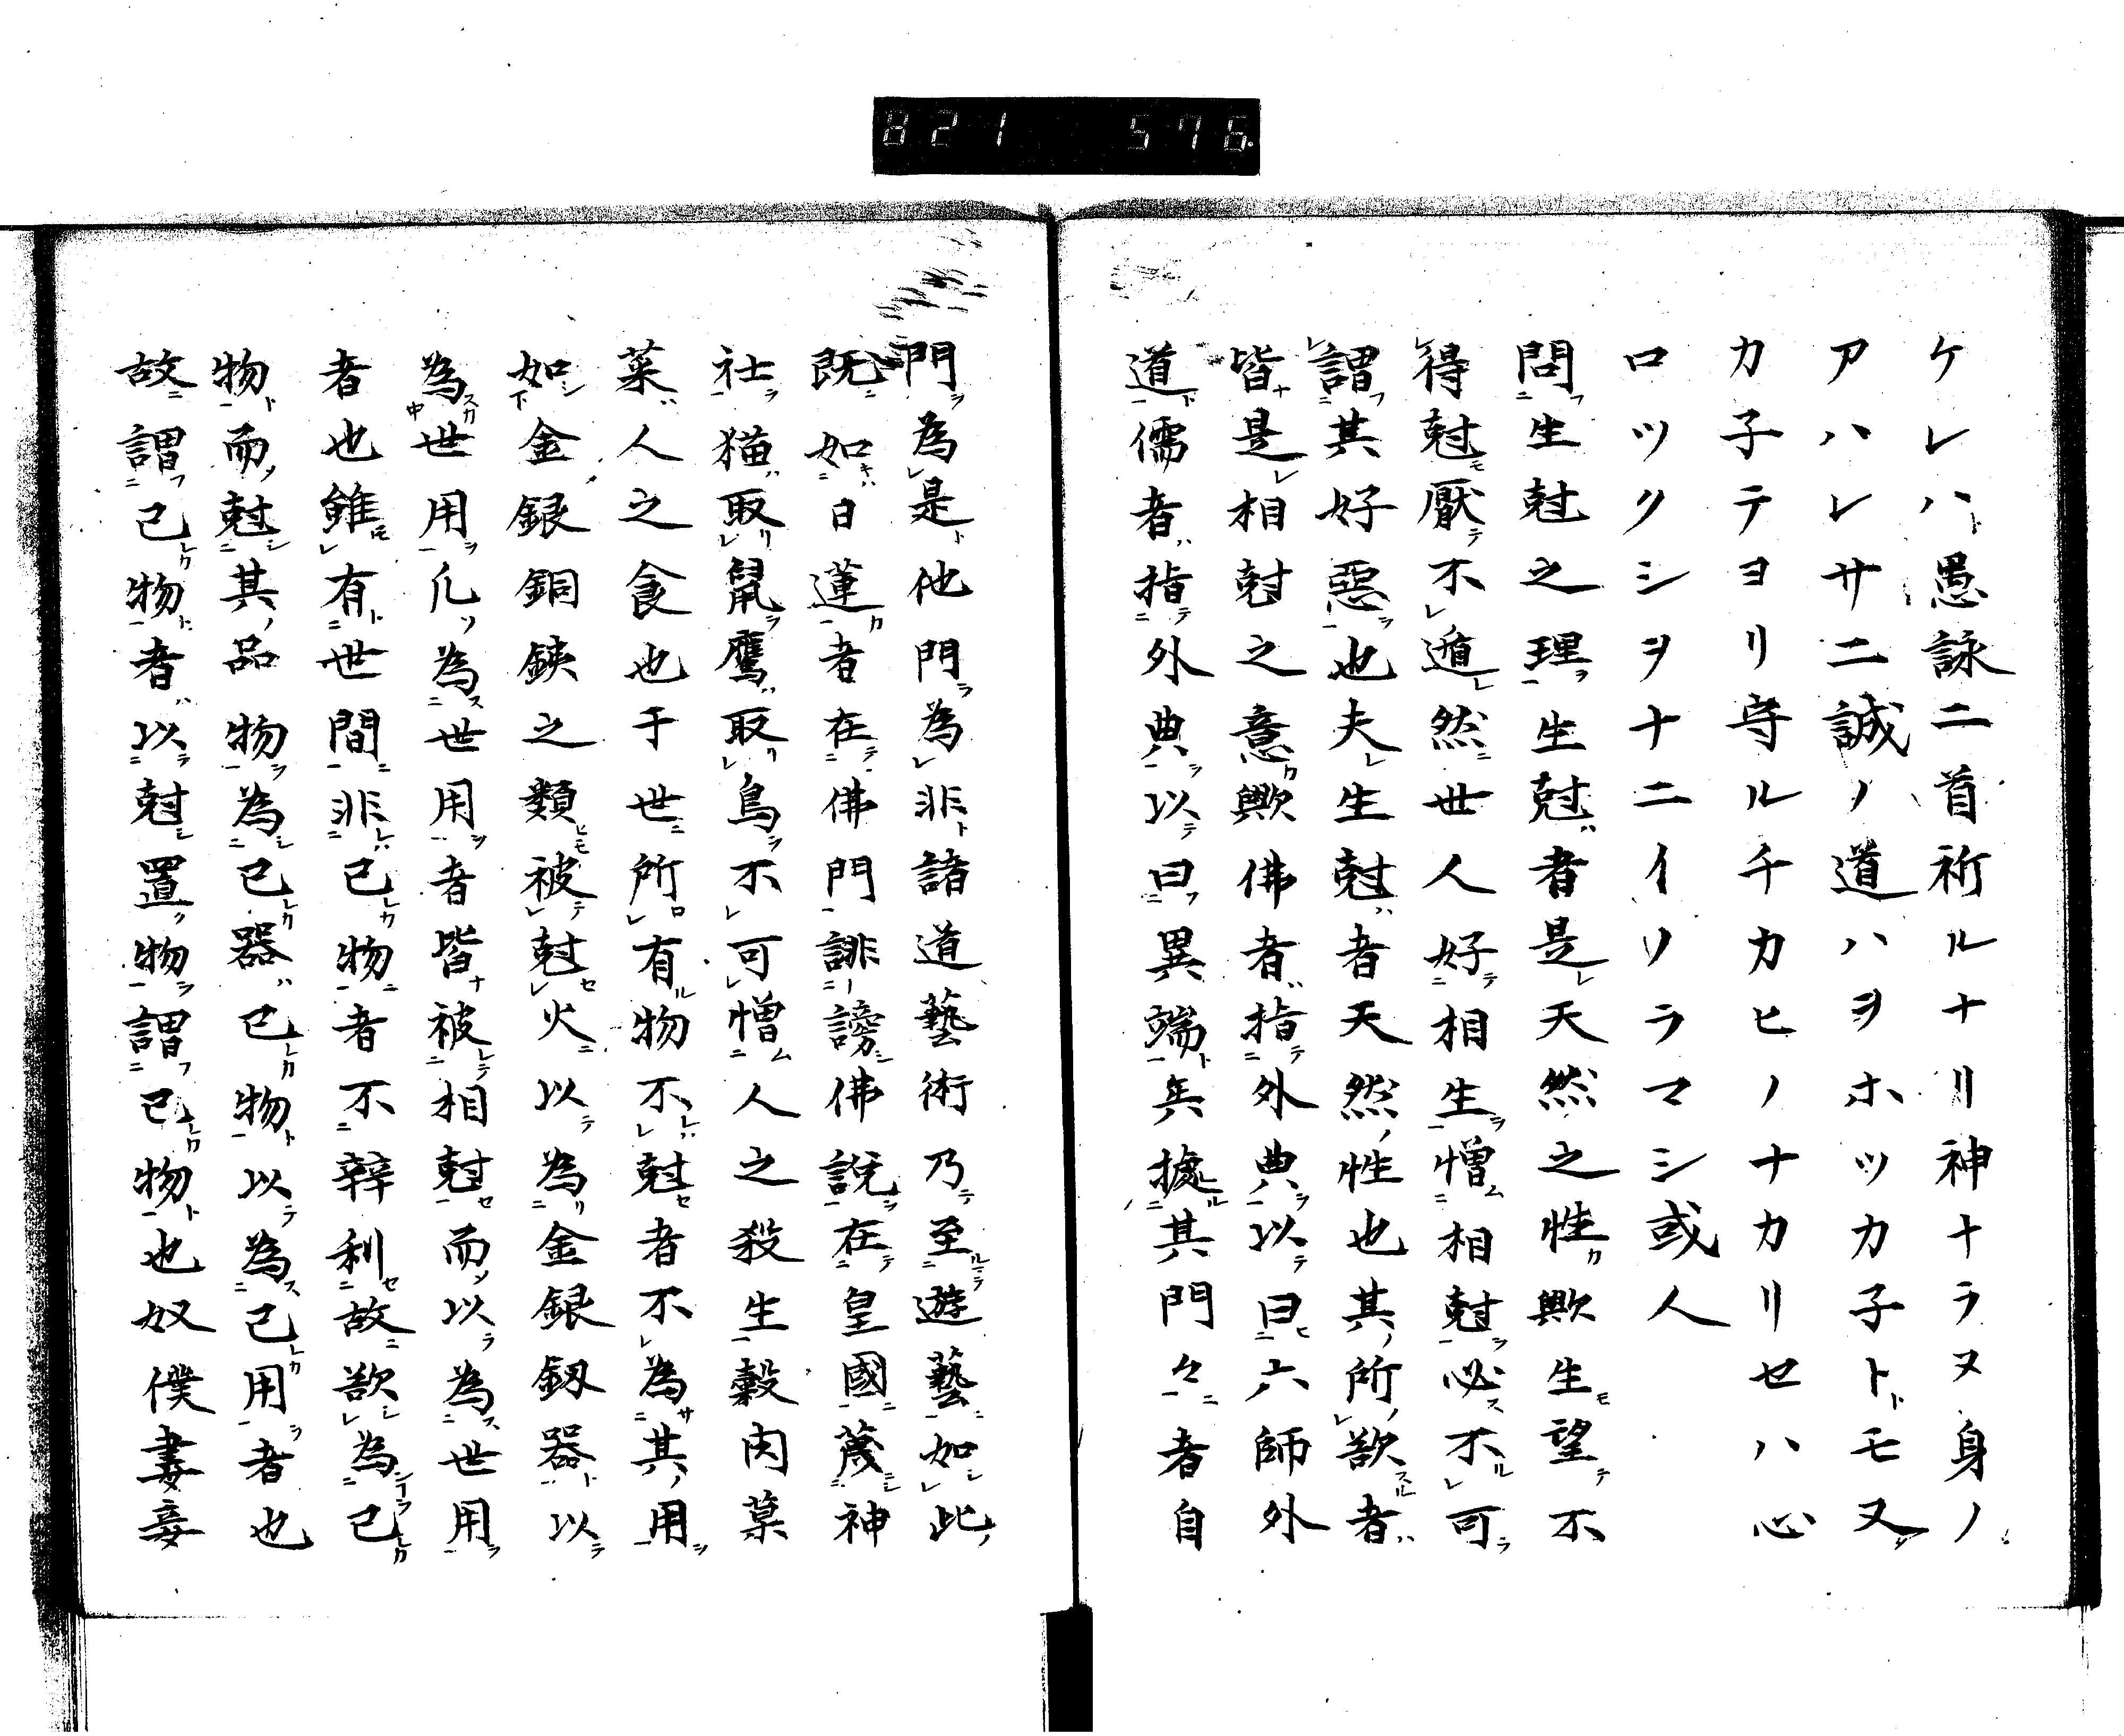 821 576.
ケレハト愚詠二首祈ルナリ神ナラヌ身ノ
アハレサニ誠ノ道ハヲホツカ子トトモ又
カ子テヨリ守ルチカヒノナカリセハ心
ロツクシヲナニイノラマシ或人
問生尅之理生尅者是天然之性歟生望不
得尅厭不遁然世人好相生憎相尅必不可
謂其好惡也夫生尅者天然性也其所欲者
皆是相尅之意歟佛者指外典以曰六師外
道儒者指外典以曰異端兵據其門々者自
門為是他門為非諸道藝術乃至遊藝如此
既如日蓮者在佛門誹謗佛說在皇國蔑神
社猫取鼠鷹取鳥不可憎人之殺生穀肉菓
菜人之食也于世所有物不尅者不為其用
如金銀銅鉄之類被尅火以為金銀釼器以
為世用凡為世用者皆被相尅而以為世用
者也雖有世間非己物者不辨利故欲為己
物而尅其品物為己器己物以為己用者也
故謂己物者以尅置物謂己物也奴僕妻妾